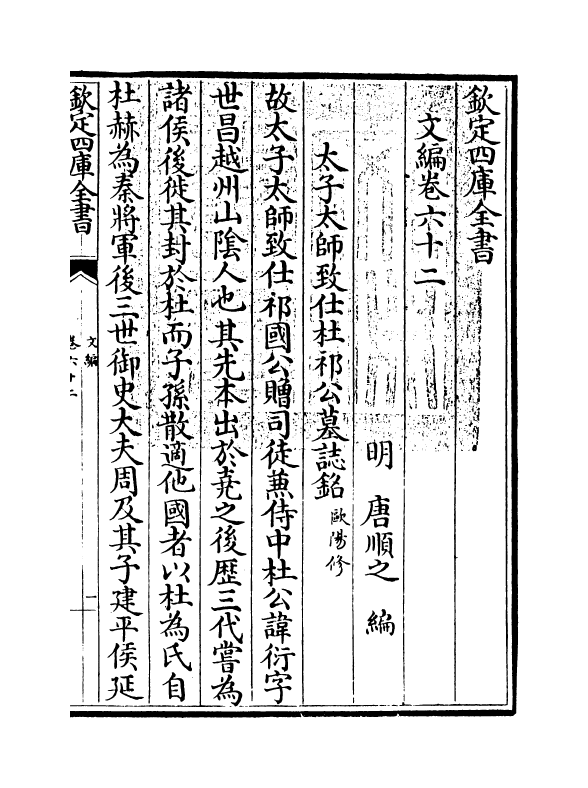 欽定四庫全書
文編卷六十二
明 唐順之 編
太子太師致仕杜祁公墓誌銘 歐陽修
故太子太師致仕祁國公贈司徒兼侍中杜公諱衍字
世昌越州山陰人也其先本出於堯之後歴三代嘗為
諸侯後徙其封於杜而子孫散適他國者以杜為氏自
杜赫為秦將軍後三世御史大夫周及其子建平侯延
欽定四庫全書
文編
卷六十二
一